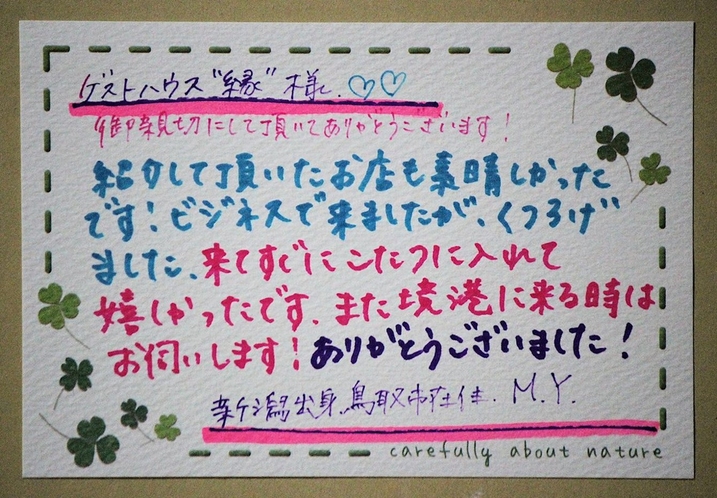 ゲストハウス"縁"様.♡♡
御親切にして頂いてありがとうございます!
紹介して頂いたお店も素晴しかった
です!ビジネスで来ましたが、くつろげ
ました、来てすぐにこたつに入れて
嬉しかったです、また境港に来る時は
お伺いします!ありがとうございました!
新潟出身、鳥取市在住. M.Y.
carefully about nature